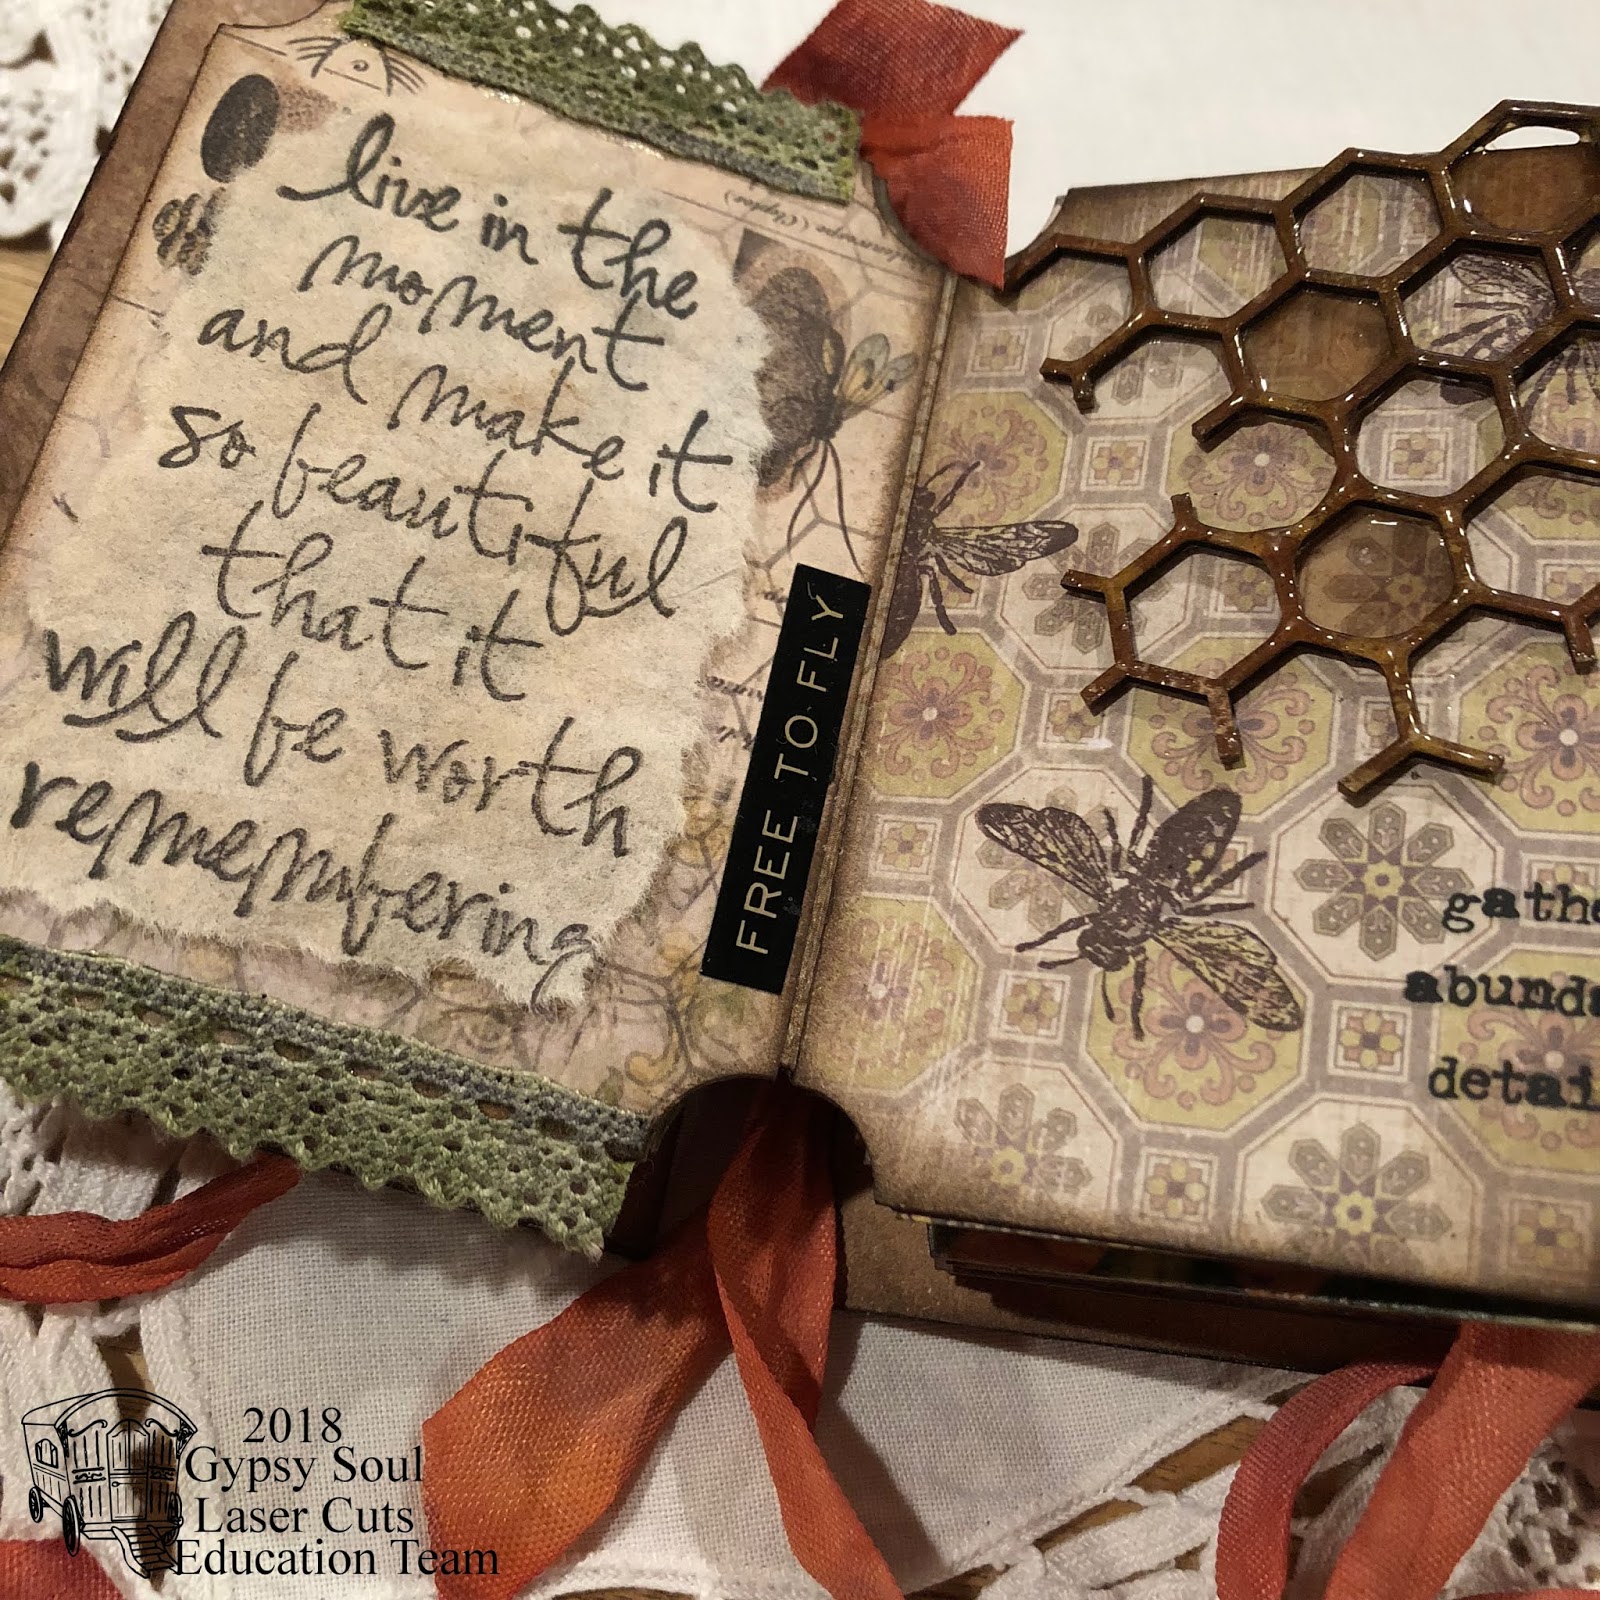 live in the
moment
and make it
so beautiful
that it
will be worth
remembering
FREE TO FLY
gathe
abunda
detai
2018
Gypsy Soul
Laser Cuts
Education Team